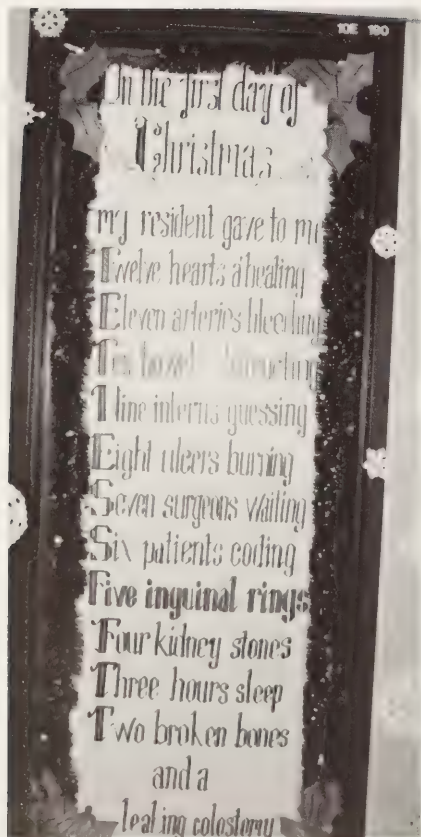 10E 190
On the first day of
Christmas
my resident gave to me
Twelve hearts a'healing
Eleven arteries bleeding
Ten bowels
Nine interns guessing
Eight ulcers burning
Seven surgeons waiting
Six patients coding
Five inguinal rings
Four kidney stones
Three hours sleep
Two broken bones
and a
leaking colostomy